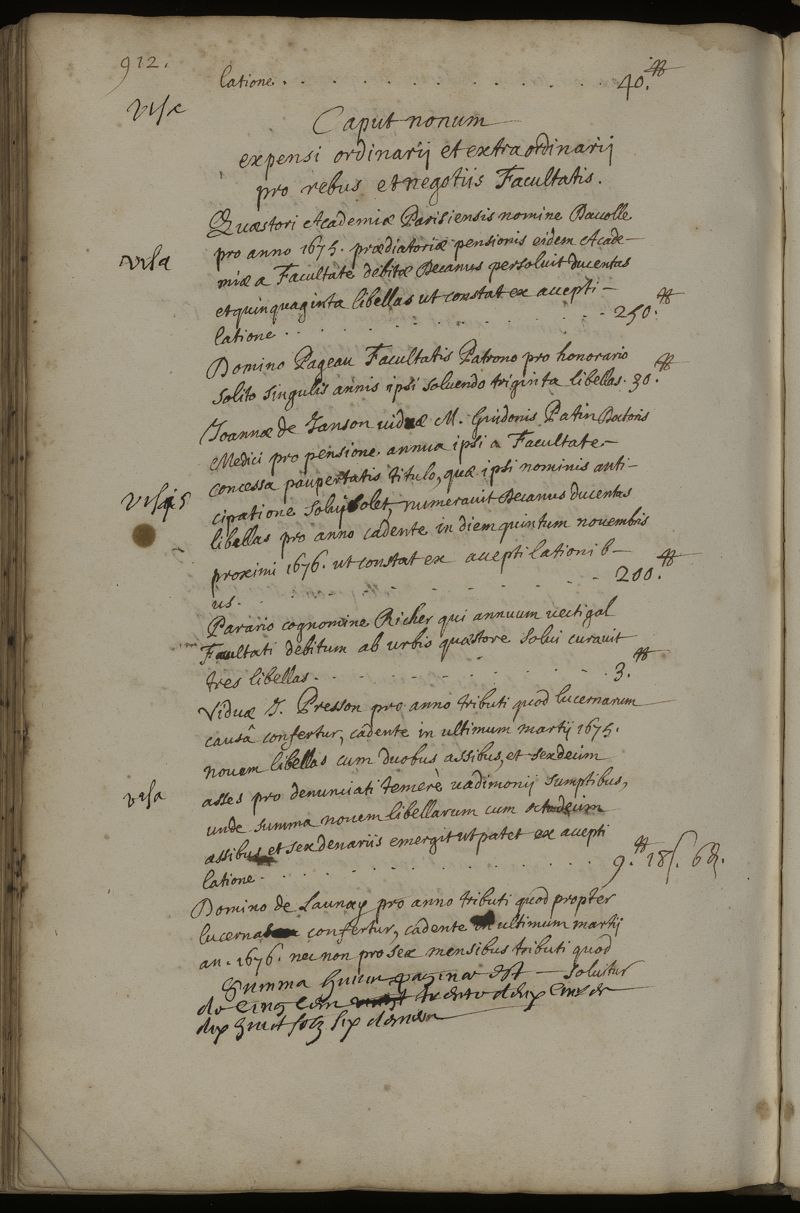 912.
latione . . . . . . . . . . . . . 40.#
visa
Caput nonum
expensi ordinarij et extraordinarij
pro rebus et negotiis Facultatis.
Quæstori Academiæ Parisiensis nomine Dauolle
pro anno 1675. prædiatoriæ pensionis eidem Acade-
visa
miæ a Facultate debitæ Decanus persoluit ducentas
et quinquaginta libellas ut constat ex accepti-
latione . . . . . . . . . . . . 250.#
Domino Pageau Facultatis Patrono pro honorario
solito singulis annis ipsi soluendo triginta libellas. 30.#
Joannæ de Janson uiduæ M. Guidonis Patin Doctoris
Medici pro pensione annua ipsi a Facultate
concessa paupertatis titulo, quæ ipsi nominis anti-
visis
cipatione solui solet, numerauit Decanus ducentas
libellas pro anno cadente in diem quintum nouembris
proximi 1676. ut constat ex acceptilationib-
us. . . . . . . . . . . 200.#
Parario cognomine Richer qui annuum uectigal
Facultati debitum ab urbis quæstore solui curauit
tres libellas . . . . . . . . . . 3.#
Viduæ J. Presson pro anno tributi quod lucernarum
causâ confertur, cadente in ultimum martij 1675.
nouem libellas cum duobus assibus, et sexdecim
visa
asses pro denunciati temerè uadimonij sumptibus,
unde summa nouem libellarum cum octodecim
assibus et sex denariis emergit ut patet ex accepti
latione . . . . . . . . . . . 9.# 18s. 6d.
Domino de Launay pro anno tributi quod propter
lucernas confertur, cadente in ultimum martij
an. 1676. nec non pro sex mensibus tributi quod
Summa huius paginæ est — soluitur
de cinq cen trente deux liures
dix huict solz six deniers